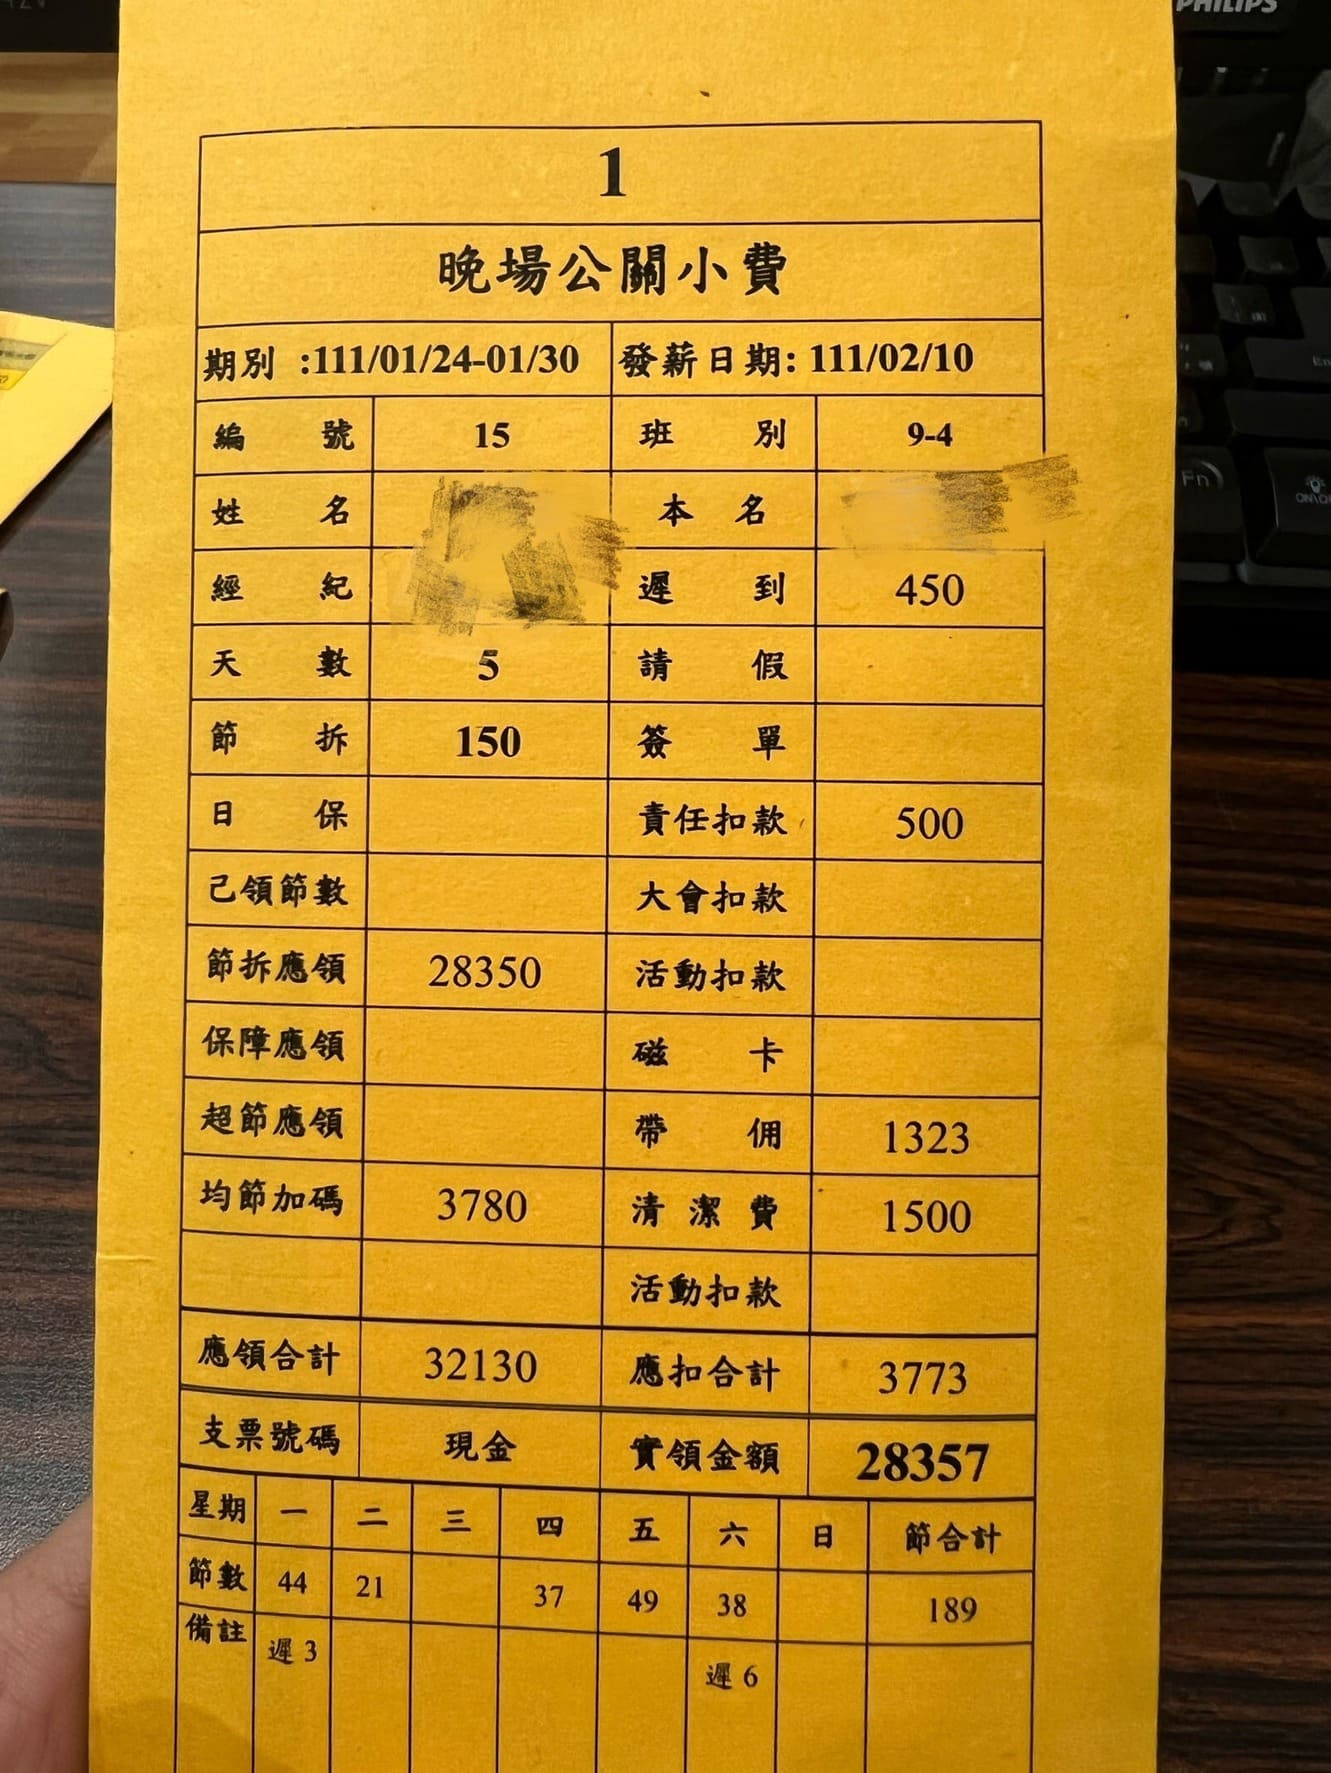 PHILIPS
1
晚場公關小費
期別 :111/01/24-01/30 發薪日期: 111/02/10
編 號 15 班 別 9-4
姓 名 本 名
經 紀 遲 到 450
天 數 5 請 假
節 拆 150 簽 單
日 保 責任扣款 500
己領節數 大會扣款
節拆應領 28350 活動扣款
保障應領 磁 卡
超節應領 帶 佣 1323
均節加碼 3780 清 潔 費 1500
活動扣款
應領合計 32130 應扣合計 3773
支票號碼 現金 實領金額 28357
星期 一 二 三 四 五 六 日 節合計
節數 44 21 37 49 38 189
備註 遲 3 遲 6
Fn